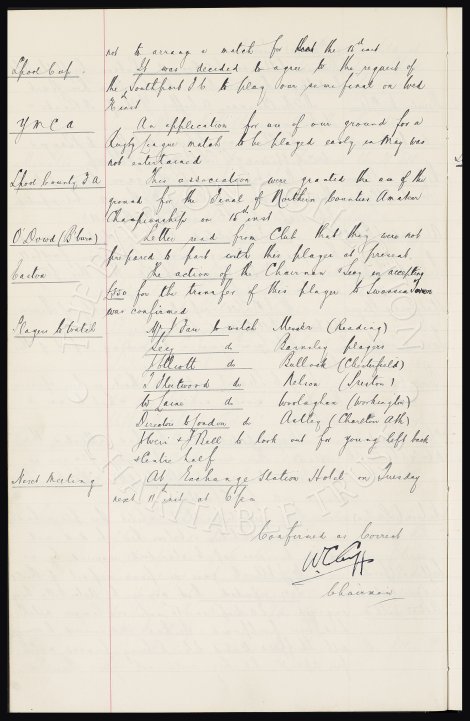 not to arrange a match for the 15th inst
L'pool Cup. It was decided to agree to the request of
the Southport F.C. to play our semi final on Wed
inst
Y M C A An application for use of our ground for a
Rugby League match to be played early in May was
not entertained
L'pool County F A This association were granted the use of the
ground for the Final of Northern Counties Amateur
Championship on 15th inst
O'Dowd (B'burn) Letter read from Club that they were not
prepared to part with this player at present
The action of the Chairman & Secy in accepting
£550 for the transfer of this player to Swansea Town
was confirmed
Players to Watch Mr J Fare to watch (Reading)
Secy do Barnsley players
do Bullock (Chesterfield)
do Nelson (Preston)
do (Workington)
Director to London do Astley (Charlton Ath)
& J Bell to look out for young left back
& Centre half
Next Meeting At Exchange Station Hotel on Tuesday
next 11th inst at 6 pm
Confirmed as Correct
W C Cuff
Chairman